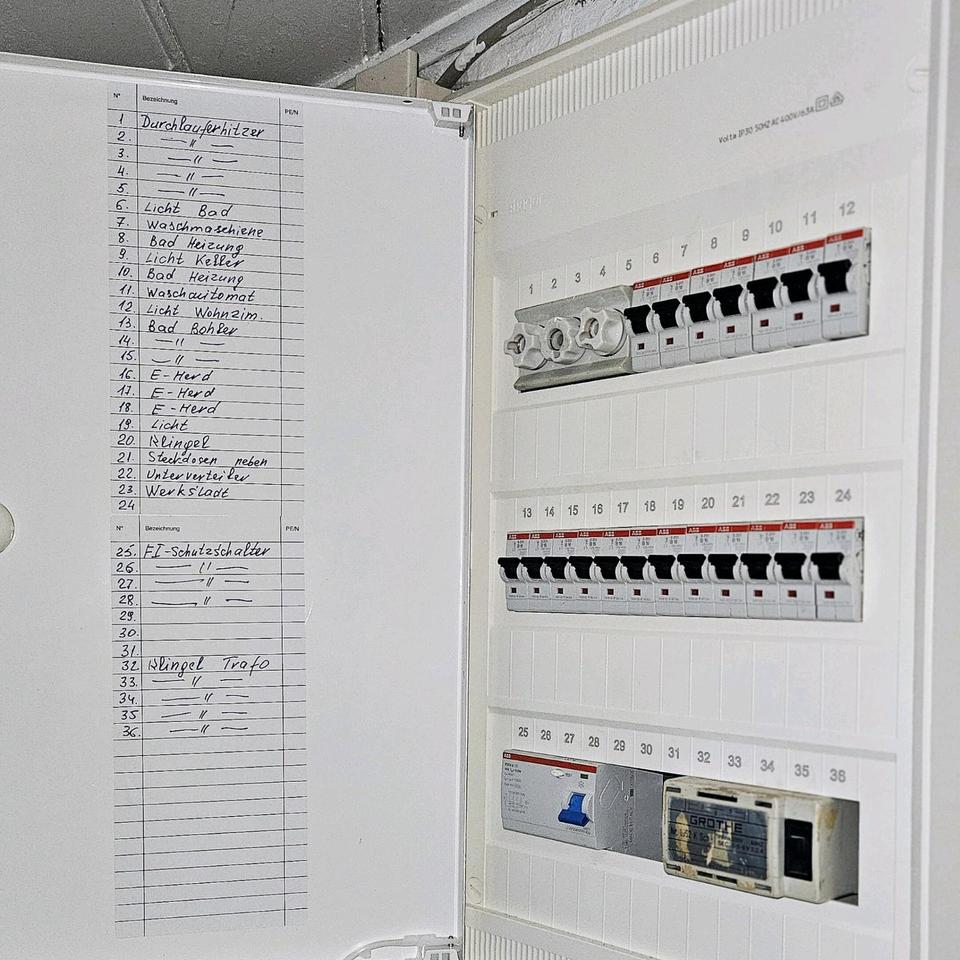 N° Bezeichnung PE/N
1 Durchlauferhitzer
2. —〃—
3. —〃—
4. —〃—
5. —〃—
6. Licht Bad
7. Waschmaschiene
8. Bad Heizung
9. Licht Keller
10. Bad Heizung
11. Waschautomat
12 Licht Wohnzim.
13. Bad Bohler
14. —〃—
15. —〃—
16. E-Herd
17. E-Herd
18. E-Herd
19. Licht
20. Klingel
21. Steckdosen neben
22. Unterverteiler
23. Werkstadt
24
N° Bezeichnung PE/N
25. FI-Schutzschalter
26. —〃—
27. —〃—
28. —〃—
29.
30.
31.
32 Klingel Trafo
33. —〃—
34. —〃—
35 —〃—
36. —〃—
Volta IP30 50HZ AC 400V/63A
hager
1 2 3 4 5 6 7 8 9 10 11 12
ABB ABB ABB ABB ABB ABB ABB
13 14 15 16 17 18 19 20 21 22 23 24
ABB ABB ABB ABB ABB ABB ABB ABB ABB ABB ABB ABB
25 26 27 28 29 30 31 32 33 34 35 36
ABB
GROTHE